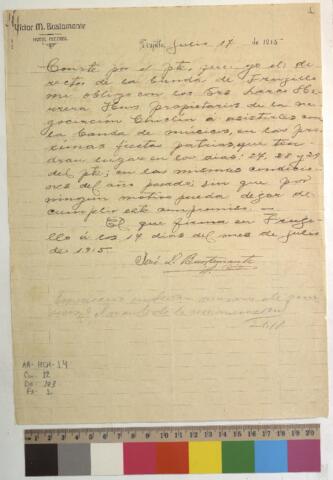 Victor M. Bustamante
HOTEL RECREO
1
Trujillo, Julio 17 de 1915
Conste por el pte. que yo el di-
rector de la banda de Trujillo
me obligo con los Srs Larco He-
rrera Hnos propietarios de la ne-
gociación Chiclín á asistirles con
la banda de músicos, en las pró-
ximas fiestas patrias, que ten-
drán lugar en los días: 27, 28 y 29
del pte; en las mismas condicio-
nes del año pasado; sin que por
ningún motivo pueda dejar de
cumplir este compromiso.
El que firma en Truji-
llo á los 17 días del mes de julio
de 1915.
José D. Bustamante
AA-HCH-14
Ca: 12
Do: 303
Fs: 1
1 2 3 4 5 6 7 8 9 10 11 12 13 14 15 16 17 18 19 20